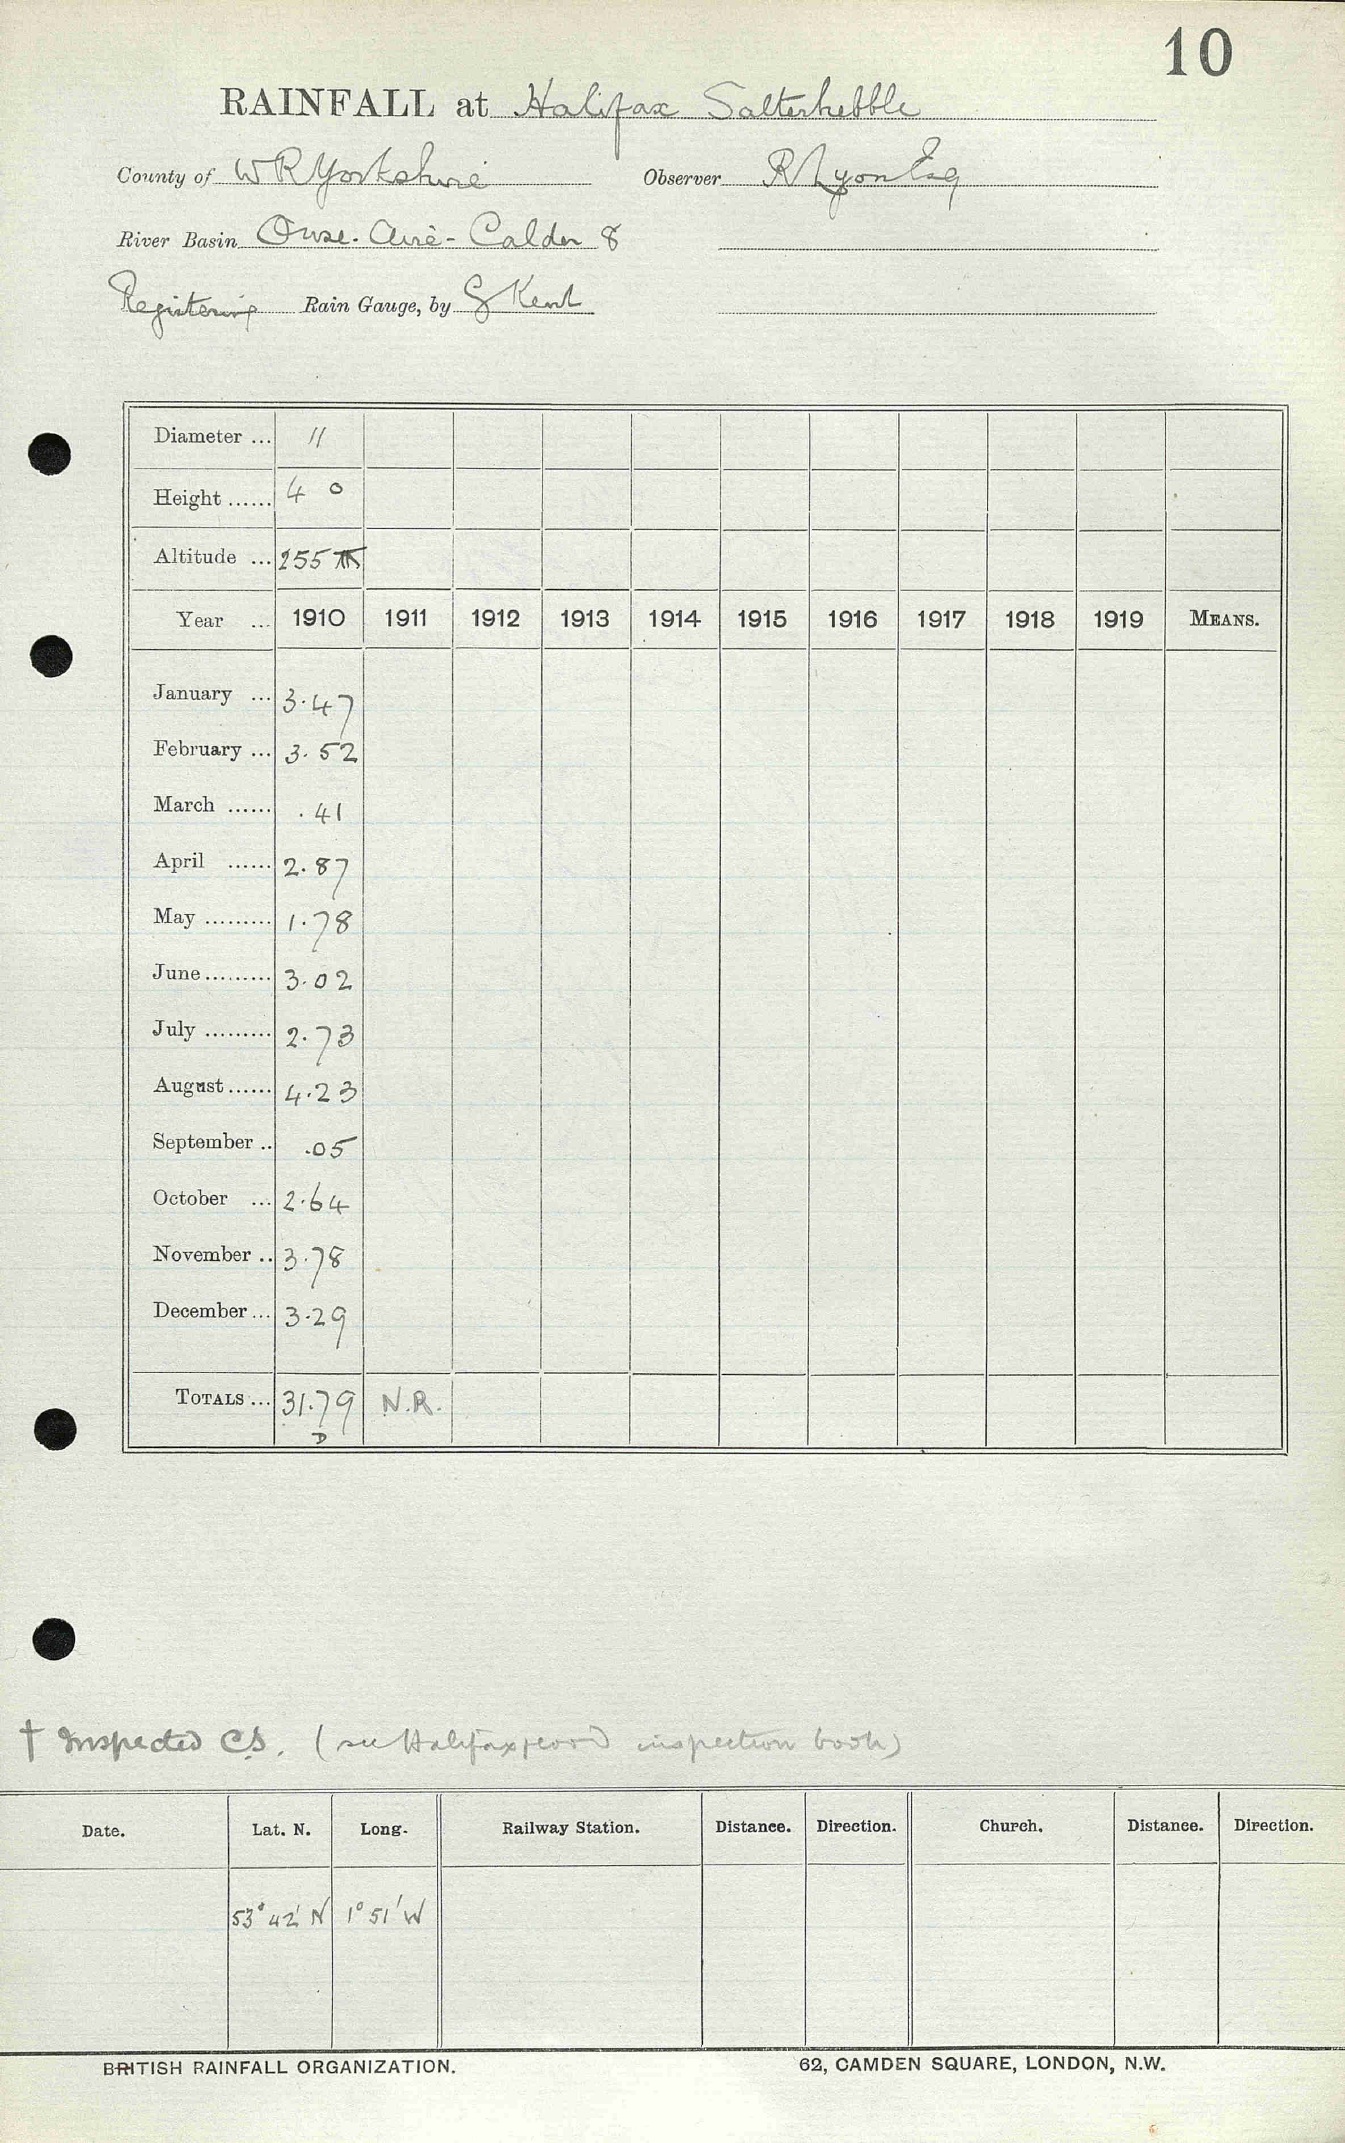 10
RAINFALL at Halifax Salterhebble
County of W R Yorkshire Observer R Lyon Esq
River Basin Ouse - Aire - Calder 8
Registering Rain Gauge, by G Kent
Diameter ... 11
Height ...... 4 0
Altitude ... 255
Year ... 1910 1911 1912 1913 1914 1915 1916 1917 1918 1919 MEANS.
January ... 3.47
February ... 3.52
March ...... .41
April ...... 2.87
May ......... 1.78
June ......... 3.02
July ......... 2.73
August ...... 4.23
September .. .05
October ... 2.64
November .. 3.78
December ... 3.29
TOTALS ... 31.79 N.R.
D
† Inspected C.S. (see Halifax record inspection book)
Date. Lat. N. Long. Railway Station. Distance. Direction. Church. Distance. Direction.
53° 42' N 1° 51' W
BRITISH RAINFALL ORGANIZATION. 62, CAMDEN SQUARE, LONDON, N.W.